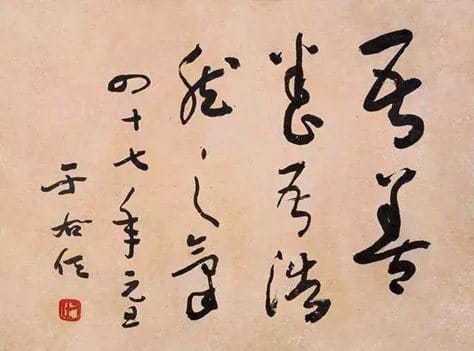 吾善
養吾浩
然之氣
四十七年元旦
于右任